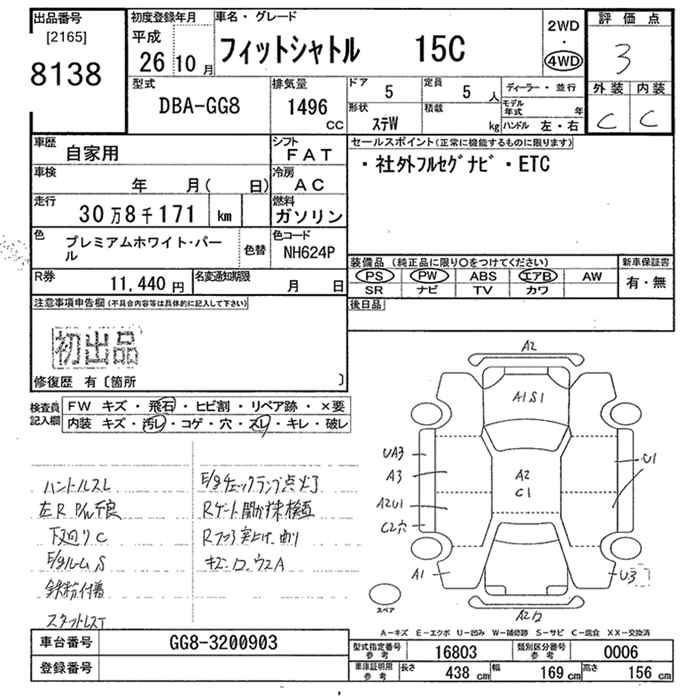 出品番号
[2165]
8138
初度登録年月
平成
26年10月
車名・グレード
フィットシャトル 15C
2WD
・
4WD
評価点
3
外装 内装
C C
型式
DBA-GG8
排気量
1496
CC
ドア 5
定員 5人
形状 ステW
積載 kg
ディーラー・並行
モデル年式 年
ハンドル 左・右
車歴 自家用
シフト FAT
車検 年 月( 日)
冷房 AC
走行 30万8千171 km
燃料 ガソリン
色 プレミアムホワイト・パール
色替
色コード NH624P
R券 11,440円
名変通知期限 月 日
セールスポイント(正常に機能するものに限ります)
・社外フルセグナビ・ETC
装備品(純正品に限り○をつけてください)
PS PW ABS エアB AW
SR ナビ TV カワ
新車保証書
有・無
後日品
注意事項申告欄(不具合内容等は具体的に記入して下さい)
初出品
修復歴 有〔箇所 〕
検査員記入欄
FW キズ・飛石・ヒビ割・リペア跡・×要
内装 キズ・汚レ・コゲ・穴・スレ・キレ・破レ
ハンドルスレ
左R P/W不良
下廻りC
E/gルームS
鉄粉付着
スタットレスT
E/gチェックランプ点灯
Rゲート開かず未検査
Rフロア突上げ、曲り
キズ・凹、ウスA
A2
A1S1
UA3
A3
A2
C1
U1
A2U1
C2穴
A1
U3
スペア
A2凹
A-キズ E-エクボ U-凹み W-補修跡 S-サビ C-腐食 XX-交換済
車台番号 GG8-3200903
登録番号
型式指定番号 参考 16803
類別区分番号 参考 0006
車庫証明用 参考 長さ 438 cm 幅 169 cm 高さ 156 cm